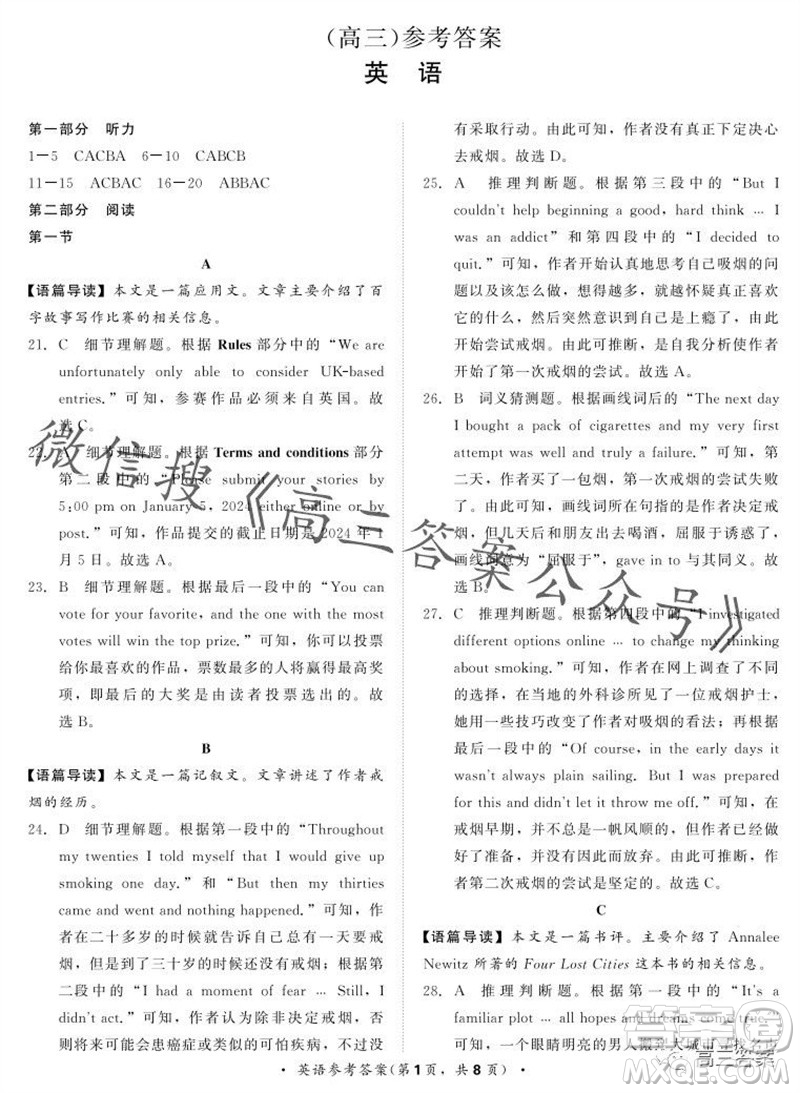 （高三）参考答案
英　语
第一部分　听力
1—5　CACBA　6—10　CABCB
11—15　ACBAC　16—20　ABBAC
第二部分　阅读
第一节
A
【语篇导读】本文是一篇应用文。文章主要介绍了百
字故事写作比赛的相关信息。
21.　C　细节理解题。根据 Rules 部分中的“We are
unfortunately only able to consider UK-based
entries.”可知，参赛作品必须来自英国。故
选 C。
22.　A　细节理解题。根据 Terms and conditions 部分
第二段中的“Please submit your stories by
5:00 pm on January 5, 2024 either online or by
post.”可知，作品提交的截止日期是 2024 年 1
月 5 日。故选 A。
23.　B　细节理解题。根据最后一段中的“You can
vote for your favorite, and the one with the most
votes will win the top prize.”可知，你可以投票
给你最喜欢的作品，票数最多的人将赢得最高奖
项，即最后的大奖是由读者投票选出的。故
选 B。
B
【语篇导读】本文是一篇记叙文。文章讲述了作者戒
烟的经历。
24.　D　细节理解题。根据第一段中的“Throughout
my twenties I told myself that I would give up
smoking one day.”和“But then my thirties
came and went and nothing happened.”可知，
作者在二十多岁的时候就告诉自己总有一天要戒
烟，但是到了三十岁的时候仍没有戒烟。根据第
二段中的“I had a moment of fear … Still, I
didn't act.”可知，作者认为除非决定戒烟，否则
将来会面临患癌症或类似的可怕疾病，不过还没
有采取行动。由此可知，作者没有真正下定决心
去戒烟。故选 D。
25.　A　推理判断题。根据第三段中的“But I
couldn't help beginning a good, hard think … I
was an addict”和第四段中的“I decided to
quit.”可知，作者开始认真地思考自己吸烟的问
题以及该怎么做，想得越多，就越怀疑真正喜欢
它的什么，然后突然意识到自己是上瘾了，由于
意识到这一点，作者决定戒烟。由此可推断，是
认真的思考导致作者开始尝试戒烟。故选 A。
26.　B　词义猜测题。根据画线词后的“The next day
I bought a pack of cigarettes and my very first
attempt was well and truly a failure.”可知，第
二天，作者买了一包烟，第一次尝试戒烟以失败
告终。由此可知，画线词所在句指的是作者决定戒
烟，但几天后和朋友出去喝酒，屈服于诱惑，
画线词意为“屈服于”，gave in to 与其同义。故
选 B。
27.　C　推理判断题。根据第四段中的“I investigated
different options online … to change my thinking
about smoking.”可知，作者在网上调查了不同
的选择，在当地的外科诊所见了一位戒烟护士，
她用一些技巧改变了作者对吸烟的看法；再根据
最后一段中的“Of course, in the early days it
wasn't always plain sailing. But I was prepared
for this and didn't let it throw me off.”可知，在
戒烟早期，并不总是一帆风顺的，但作者已经做
好了准备，没有因此而放弃。由此可推断，作者
第二次戒烟的尝试是坚定的。故选 C。
C
【语篇导读】本文是一篇书评。主要介绍了 Annalee
Newitz 所著的 Four Lost Cities 这本书的相关信息。
28.　A　推理判断题。根据第一段中的“It's a
familiar plot … all hopes and dreams come true.”
可知，一个眼睛明亮的男人搬
英语参考答案（第 1 页，共 8 页）
微信搜《高三答案公众号》
高三答案